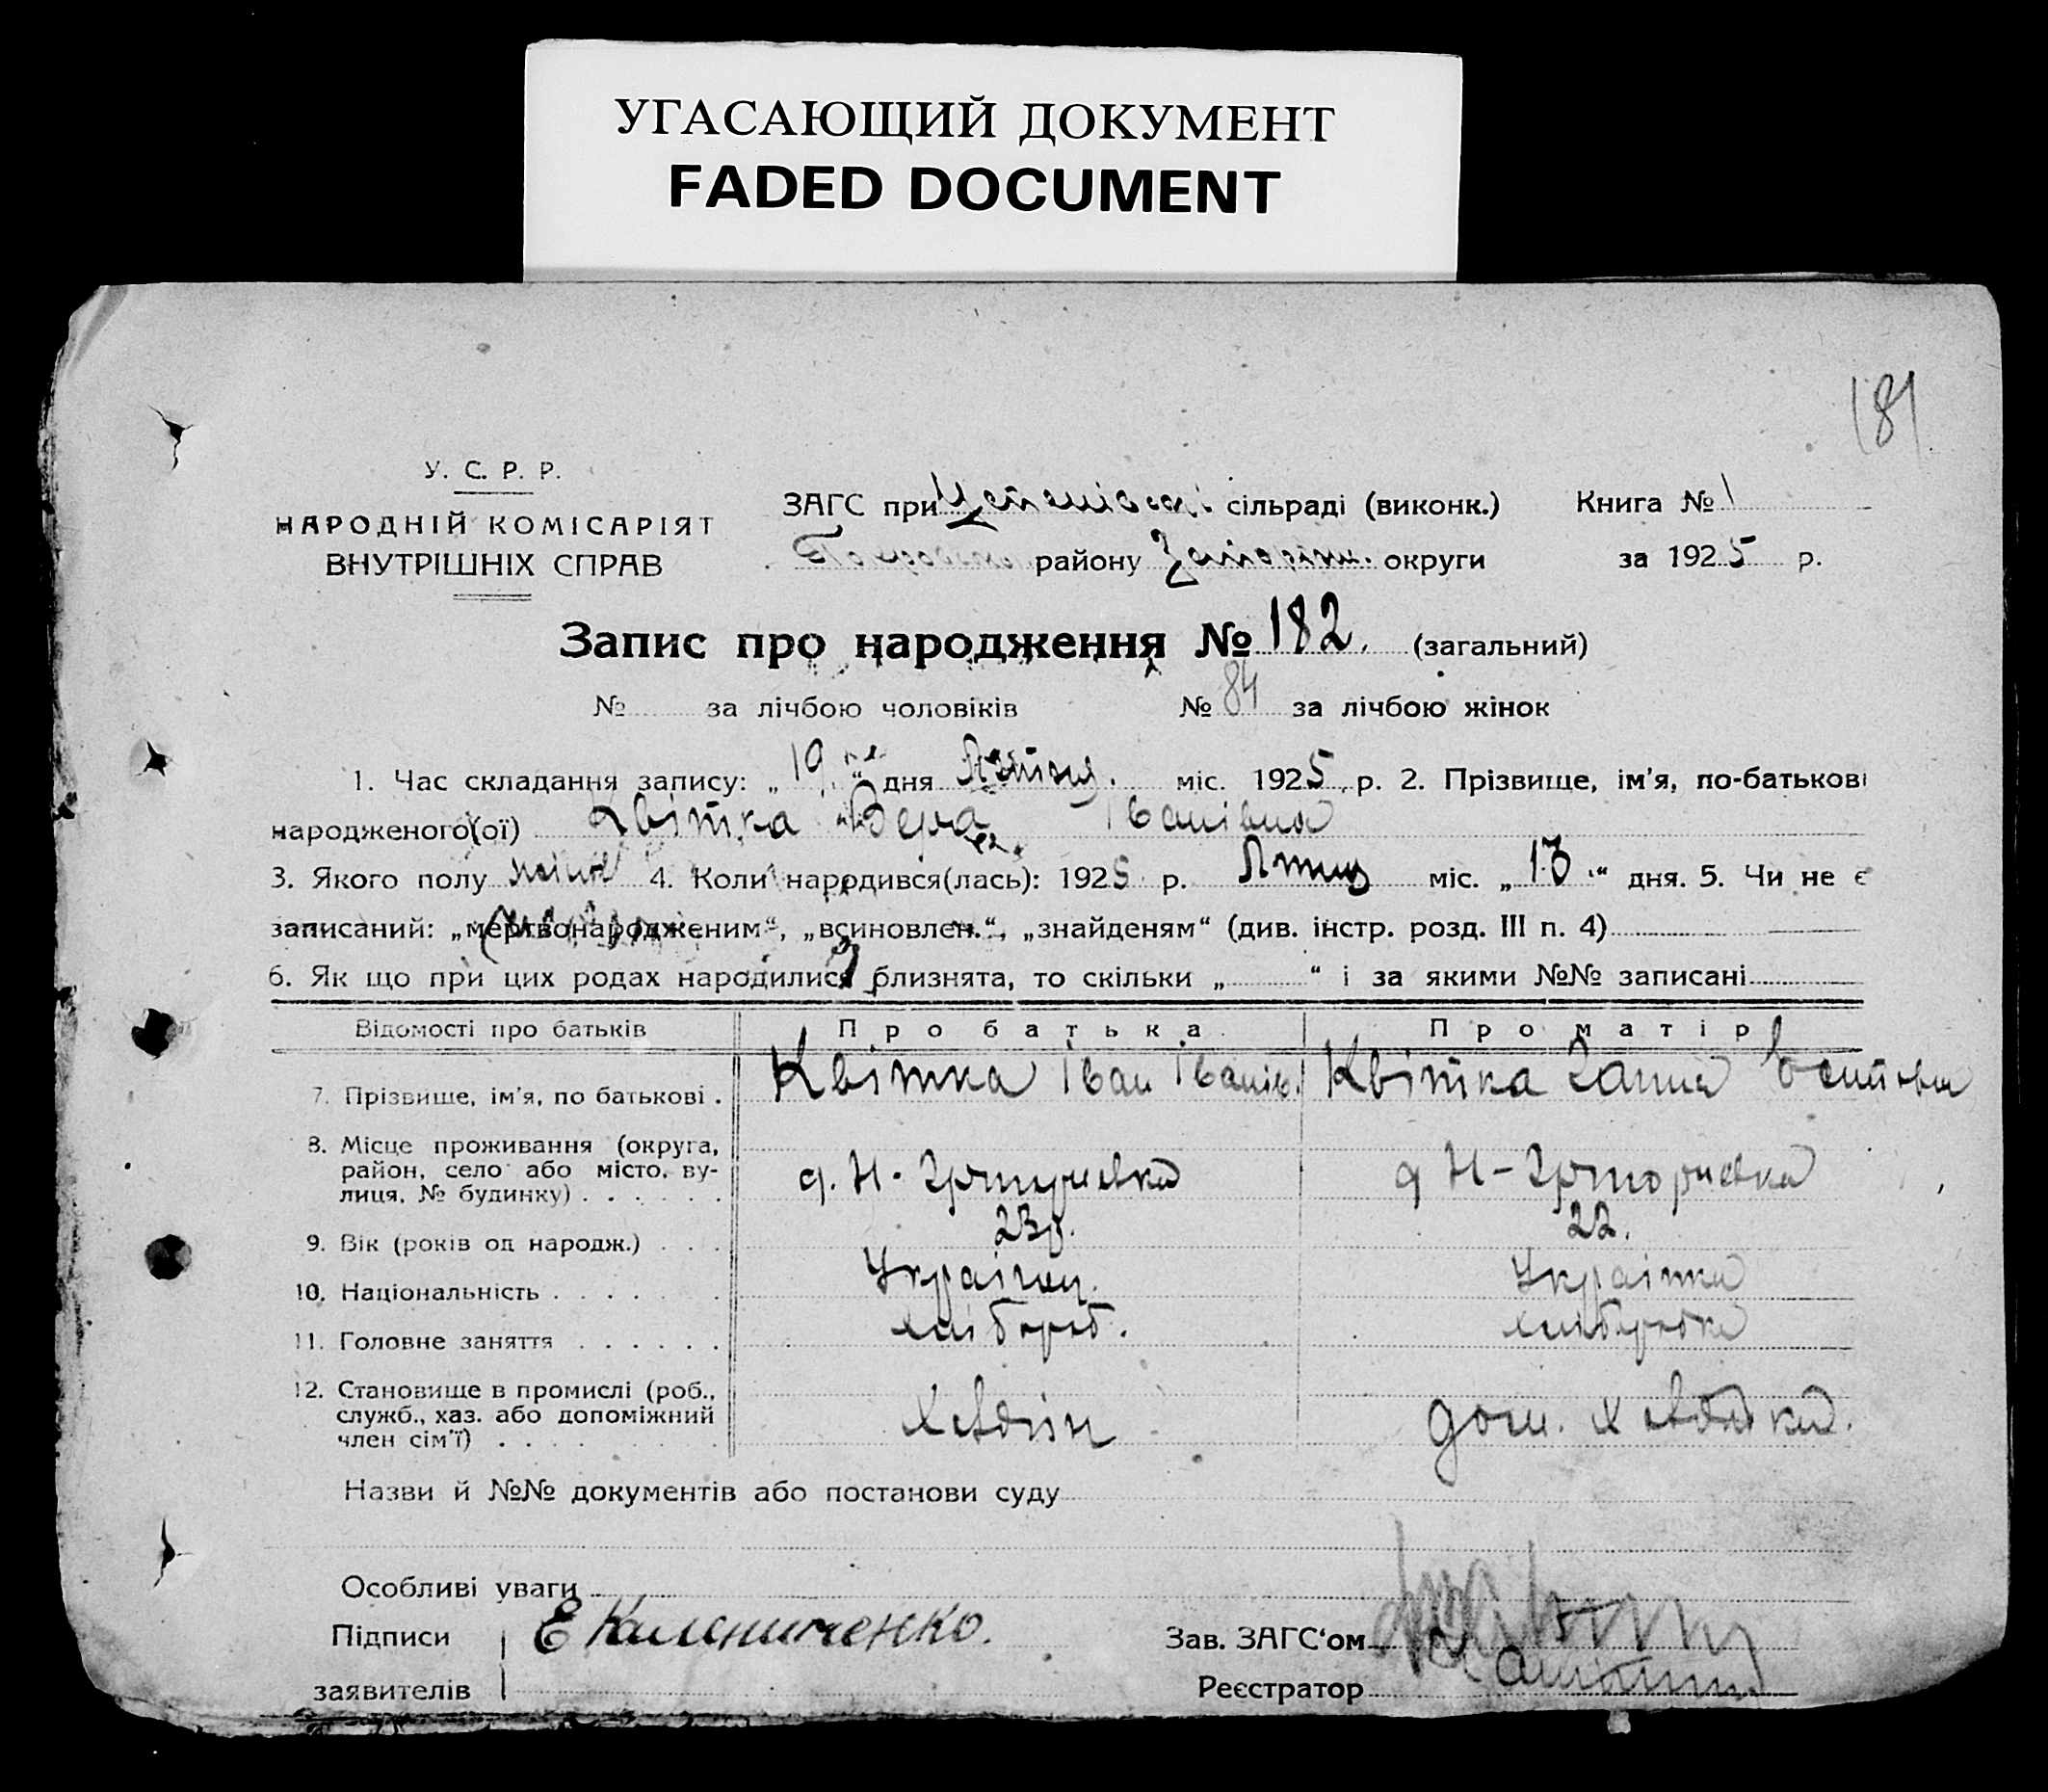 УГАСАЮЩИЙ ДОКУМЕНТ
FADED DOCUMENT
181
У. С. Р. Р.
НАРОДНІЙ КОМІСАРІЯТ
ВНУТРІШНІХ СПРАВ
ЗАГС при сільраді (виконк.) Книга № 1
району Запоріж. округи за 1925 р.
Запис про народження № 182. (загальний)
№ за лічбою чоловіків № 84 за лічбою жінок
1. Час складання запису: „19“ дня міс. 1925 р. 2. Прізвище, ім'я, по-батькові
народженого(ої) Квітка Вера Іванівна
3. Якого полу жіноч 4. Коли народився(лась): 1925 р. міс. „13“ дня. 5. Чи не є
записаний: „мертвонародженим“, „всиновлен.“, „знайденям“ (див. інстр. розд. III п. 4)
6. Як що при цих родах народилися близнята, то скільки „ “ і за якими №№ записані
Відомості про батьків Про батька Про матір
7. Прізвище, ім'я, по батькові . Квітка Іван Іванів. Квітка Ганна
8. Місце проживання (округа,
район, село або місто, ву-
лиця, № будинку) . . . . . . д. Н- д Н-
9. Вік (років од народж.) . . . 23р. 22.
10. Національність . . . . . . Українец. Українка
11. Головне заняття . . . . . . хлібороб. хліборобка
12. Становище в промислі (роб.,
служб., хаз. або допоміжний
член сім'ї) . . . . . . Хазяін дом. Хазяйка.
Назви й №№ документів або постанови суду
Особливі уваги
Підписи Е Калениченко. Зав. ЗАГС'ом
заявителів Реєстратор